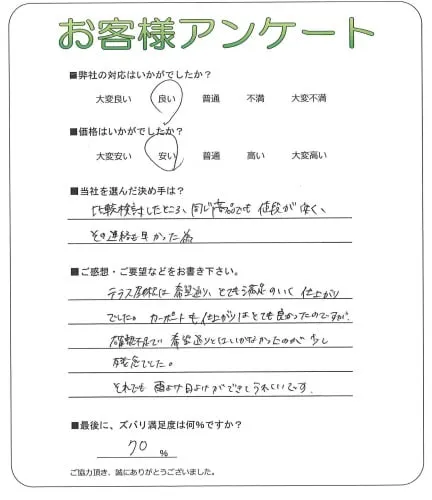 お客様アンケート
■弊社の対応はいかがでしたか？
大変良い 良い 普通 不満 大変不満
■価格はいかがでしたか？
大変安い 安い 普通 高い 大変高い
■当社を選んだ決め手は？
比較検討したところ、同じ商品でも値段が安く、
その連絡も早かった為
■ご感想・ご要望などをお書き下さい。
テラス屋根は希望通り、とても満足のいく仕上がり
でした。カーポートも仕上がりはとても良かったのですが、
確認不足で希望通りとはいかなかったのが少し
残念でした。
それでも雨よけ日よけができてうれしいです。
■最後に、ズバリ満足度は何%ですか？
70 %
ご協力頂き、誠にありがとうございました。